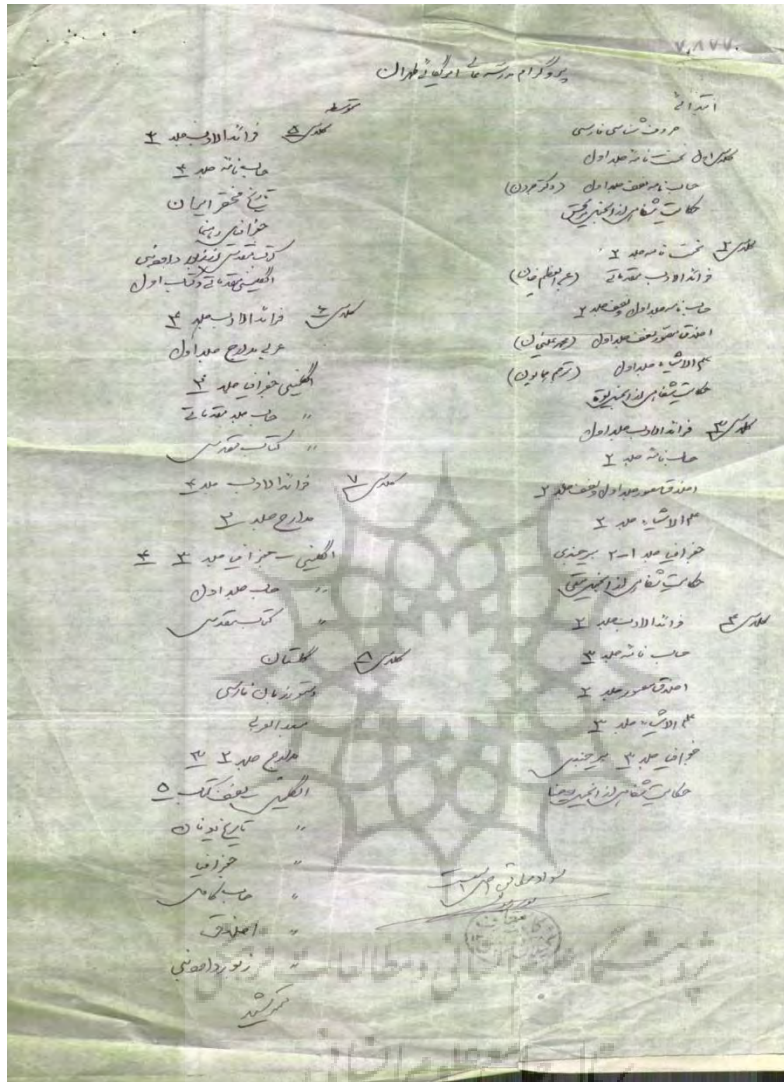 ۷۸۷۷۰
پروگرام مدرسه عالی امریکائی طهران
ابتدائی
حروف شناسی فارسی
کلاس اول نخست نامه جلد اول
حساب نامه نصف جلد اول
حکایت شفاهی از انجیل مرقس
کلاس ۲ نخست نامه جلد ۲
فرائدالادب مقدماتی (عبدالعظیم خان)
حساب نامه جلد اول و نصف جلد ۲
اخلاق مصور نصف جلد اول
علم الاشیاء جلد اول
حکایت شفاهی از انجیل لوقا
کلاس ۳ فرائدالادب جلد اول
حساب نامه جلد ۲
اخلاق مصور جلد اول و نصف جلد ۲
علم الاشیاء جلد ۲
جغرافیا جلد ۱-۲ بیرجندی
حکایت شفاهی از انجیل متی
کلاس ۴ فرائدالادب جلد ۲
حساب نامه جلد ۳
اخلاق مصور جلد ۲
علم الاشیاء جلد ۳
جغرافیا جلد ۳ بیرجندی
حکایت شفاهی از انجیل یوحنا
سواد مطابق اصل است
متوسطه
کلاس ۵ فرائدالادب جلد ۳
حساب نامه جلد ۴
تاریخ مختصر ایران
جغرافیای
کتاب مقدس
انگلیسی مقدماتی و کتاب اول
کلاس ۶ فرائدالادب جلد ۴
عربی مدارج جلد اول
انگلیسی جغرافیا جلد ۲
〃 حساب جلد مقدماتی
〃 کتاب مقدس
کلاس ۷ فرائدالادب جلد ۴
مدارج جلد ۲
انگلیسی - جغرافیا جلد ۳ ۴
〃 حساب جلد اول
〃 کتاب مقدس
کلاس ۸ گلستان
دستور زبان فارسی
مدارج جلد ۲ ۳
انگلیسی - نصف کتاب ۵
〃 تاریخ یونان
〃 جغرافیا
〃 حساب کامل
〃 اخلاق
〃
پژوهشگاه علوم انسانی و مطالعات فرهنگی
پرتال جامع علوم انسانی